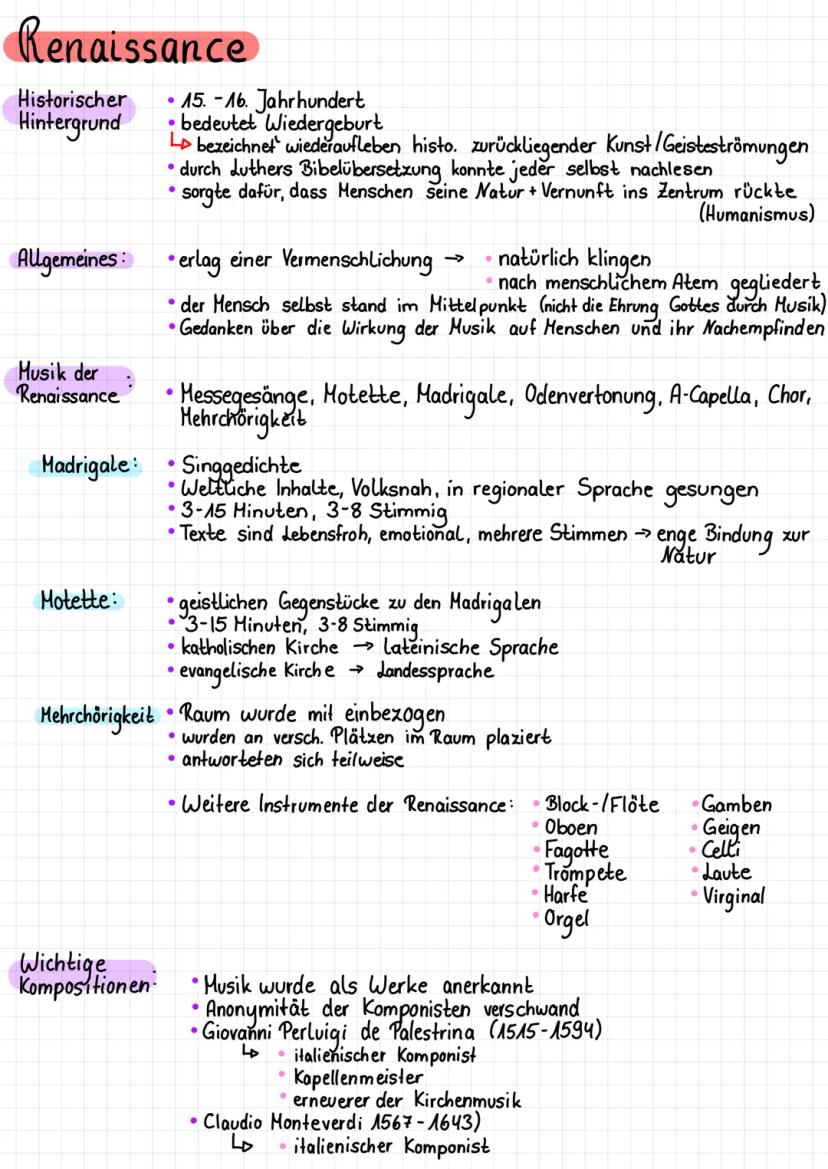 Renaissance
Historischer
Hintergrund
• 15. - 16. Jahrhundert
• bedeutet Wiedergeburt
↳ bezeichnet wiederaufleben histo. zurückliegender Kunst/Geisteströmungen
• durch Luthers Bibelübersetzung konnte jeder selbst nachlesen
• sorgte dafür, dass Menschen seine Natur + Vernunft ins Zentrum rückte
(Humanismus)
Allgemeines:
• erlag einer Vermenschlichung → • natürlich klingen
• nach menschlichem Atem gegliedert
• der Mensch selbst stand im Mittelpunkt (nicht die Ehrung Gottes durch Musik)
• Gedanken über die Wirkung der Musik auf Menschen und ihr Nachempfinden
Musik der
Renaissance :
• Messegesänge, Motette, Madrigale, Odenvertonung, A-Capella, Chor,
Mehrchörigkeit
Madrigale:
• Singgedichte
• Weltliche Inhalte, Volksnah, in regionaler Sprache gesungen
• 3-15 Minuten, 3-8 Stimmig
• Texte sind Lebensfroh, emotional, mehrere Stimmen → enge Bindung zur
Natur
Motette:
• geistlichen Gegenstücke zu den Madrigalen
• 3-15 Minuten, 3-8 Stimmig
• katholischen Kirche → lateinische Sprache
• evangelische Kirche → Landessprache
Mehrchörigkeit
• Raum wurde mit einbezogen
• wurden an versch. Plätzen im Raum plaziert
• antworteten sich teilweise
• Weitere Instrumente der Renaissance: • Block-/Flöte • Gamben
• Oboen • Geigen
• Fagotte • Celli
• Trompete • Laute
• Harfe • Virginal
• Orgel
Wichtige
Kompositionen:
• Musik wurde als Werke anerkannt
• Anonymität der Komponisten verschwand
• Giovanni Perluigi de Palestrina (1515-1594)
↳ • italienischer Komponist
• Kapellenmeister
• erneuerer der Kirchenmusik
• Claudio Monteverdi 1567-1643)
↳ • italienischer Komponist